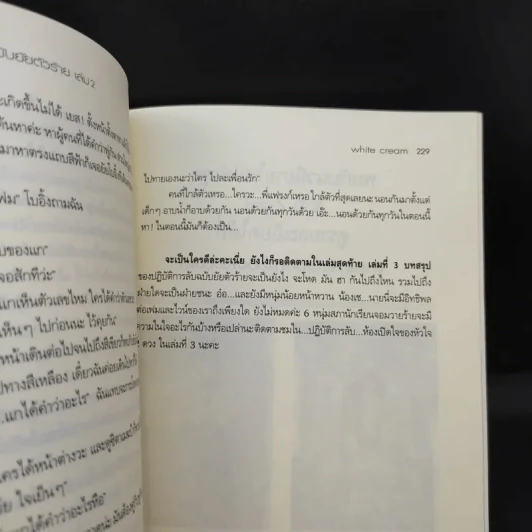 ฉบับยัยตัวร้าย เล่ม 2
เกิดขึ้นไม่ได้ เยส! ตั้งหน้าตั้งตา
ค้นหาค่ะ หาผู้คนที่ได้คำว่า
มาหาตรงแถบสีฟ้า
โบอิ้งถามฉัน
ของแก"
เจอสักทีว่ะ"
แกเห็นตัวเลขไหม ใครได้
เห็นๆ ไปก่อนนะ ไว้คุยกัน"
หน้าเดินต่อไปจนไปถึงสีเขียว
ปทางสีเหลือง เดี๋ยวฉันค่อยเดินไป
...แกได้คำว่าอะไร" ฉันแทบจะ
ใครได้หน้าต่างวะ และดูซิ
ย ใจเย็นๆ"
ได้คำว่าอะไรหือ"
white cream 229
ไปทายเองนะว่าใคร ไปละเพื่อนรัก"
คนที่ใกล้ตัวเหรอ...ใครวะ...พี่แฟรงก์เหรอ ใกล้ตัวที่สุดเลยนะ นอนกันมาตั้งแต่
เด็กๆ อาบน้ำก็อาบด้วยกัน นอนด้วยกันทุกวันด้วย เอ๊ะ...นอนด้วยกันทุกวันในตอนนี้
หา! ในตอนนี้มันก็ต้องเป็น...
จะเป็นใครดีล่ะคะเนี่ย ยังไงก็รอติดตามในเล่มสุดท้าย เล่มที่ 3 บทสรุป
ของปฏิบัติการลับฉบับยัยตัวร้ายจะเป็นยังไง จะโหด มัน ฮา กันไปถึงไหน รวมไปถึง
ฝ่ายใดจะเป็นฝ่ายชนะ อ๋อ...และยังมีหนุ่มน้อยหน้าหวาน น้องเช...นายนี่จะมีอิทธิพล
ต่อเฟมและไวน์ของเราถึงเพียงใด ยังไม่หมดค่ะ 6 หนุ่มสภานักเรียนจอมวายร้ายจะมี
ความในใจอะไรกันบ้างหรือเปล่านะติดตามชมใน...ปฏิบัติการลับ...ห้องเปิดใจของหัวใจ
ดวง ในเล่มที่ 3 นะคะ